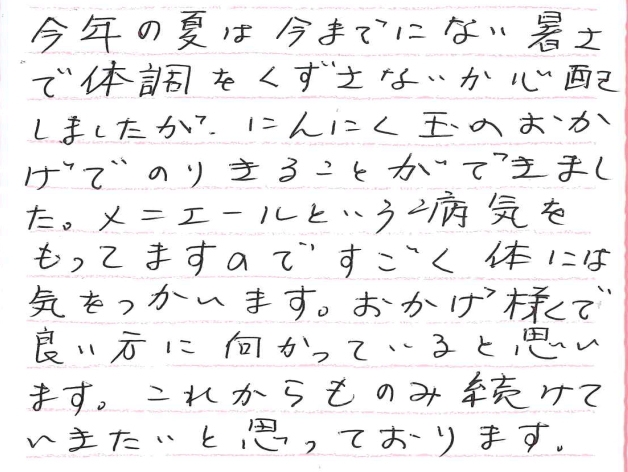 今年の夏は今までにない暑さ
で体調をくずさないか心配
しましたが、にんにく玉のおか
げでのりきることができまし
た。メニエールという病気を
もってますのですごく体には
気をつかいます。おかげ様で
良い方に向かっていると思い
ます。これからものみ続けて
いきたいと思っております。